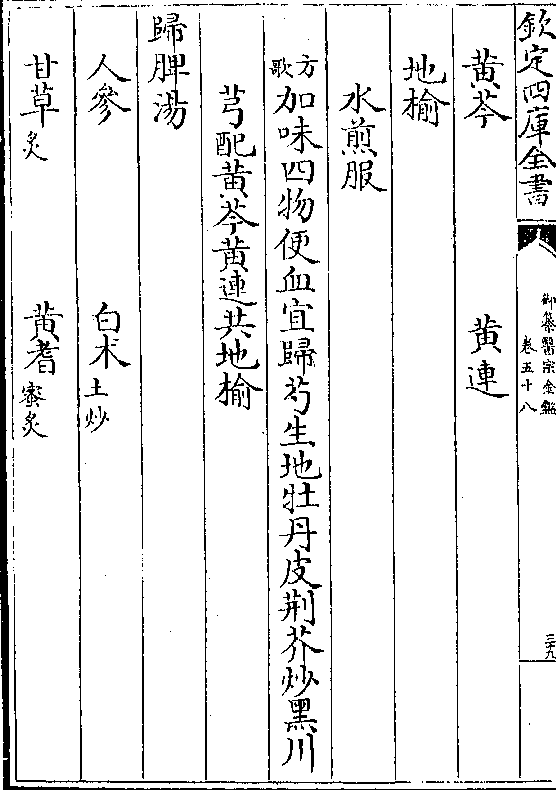 欽定四庫全書
御纂醫宗金鑑
卷五十八
三十九
黄芩 黄連
地榆
水煎服
方歌
加味四物便血宜歸芍生地牡丹皮荆芥炒黑川
芎配黄芩黄連共地榆
歸脾湯
人參 白术土炒
甘草炙 黄耆蜜炙